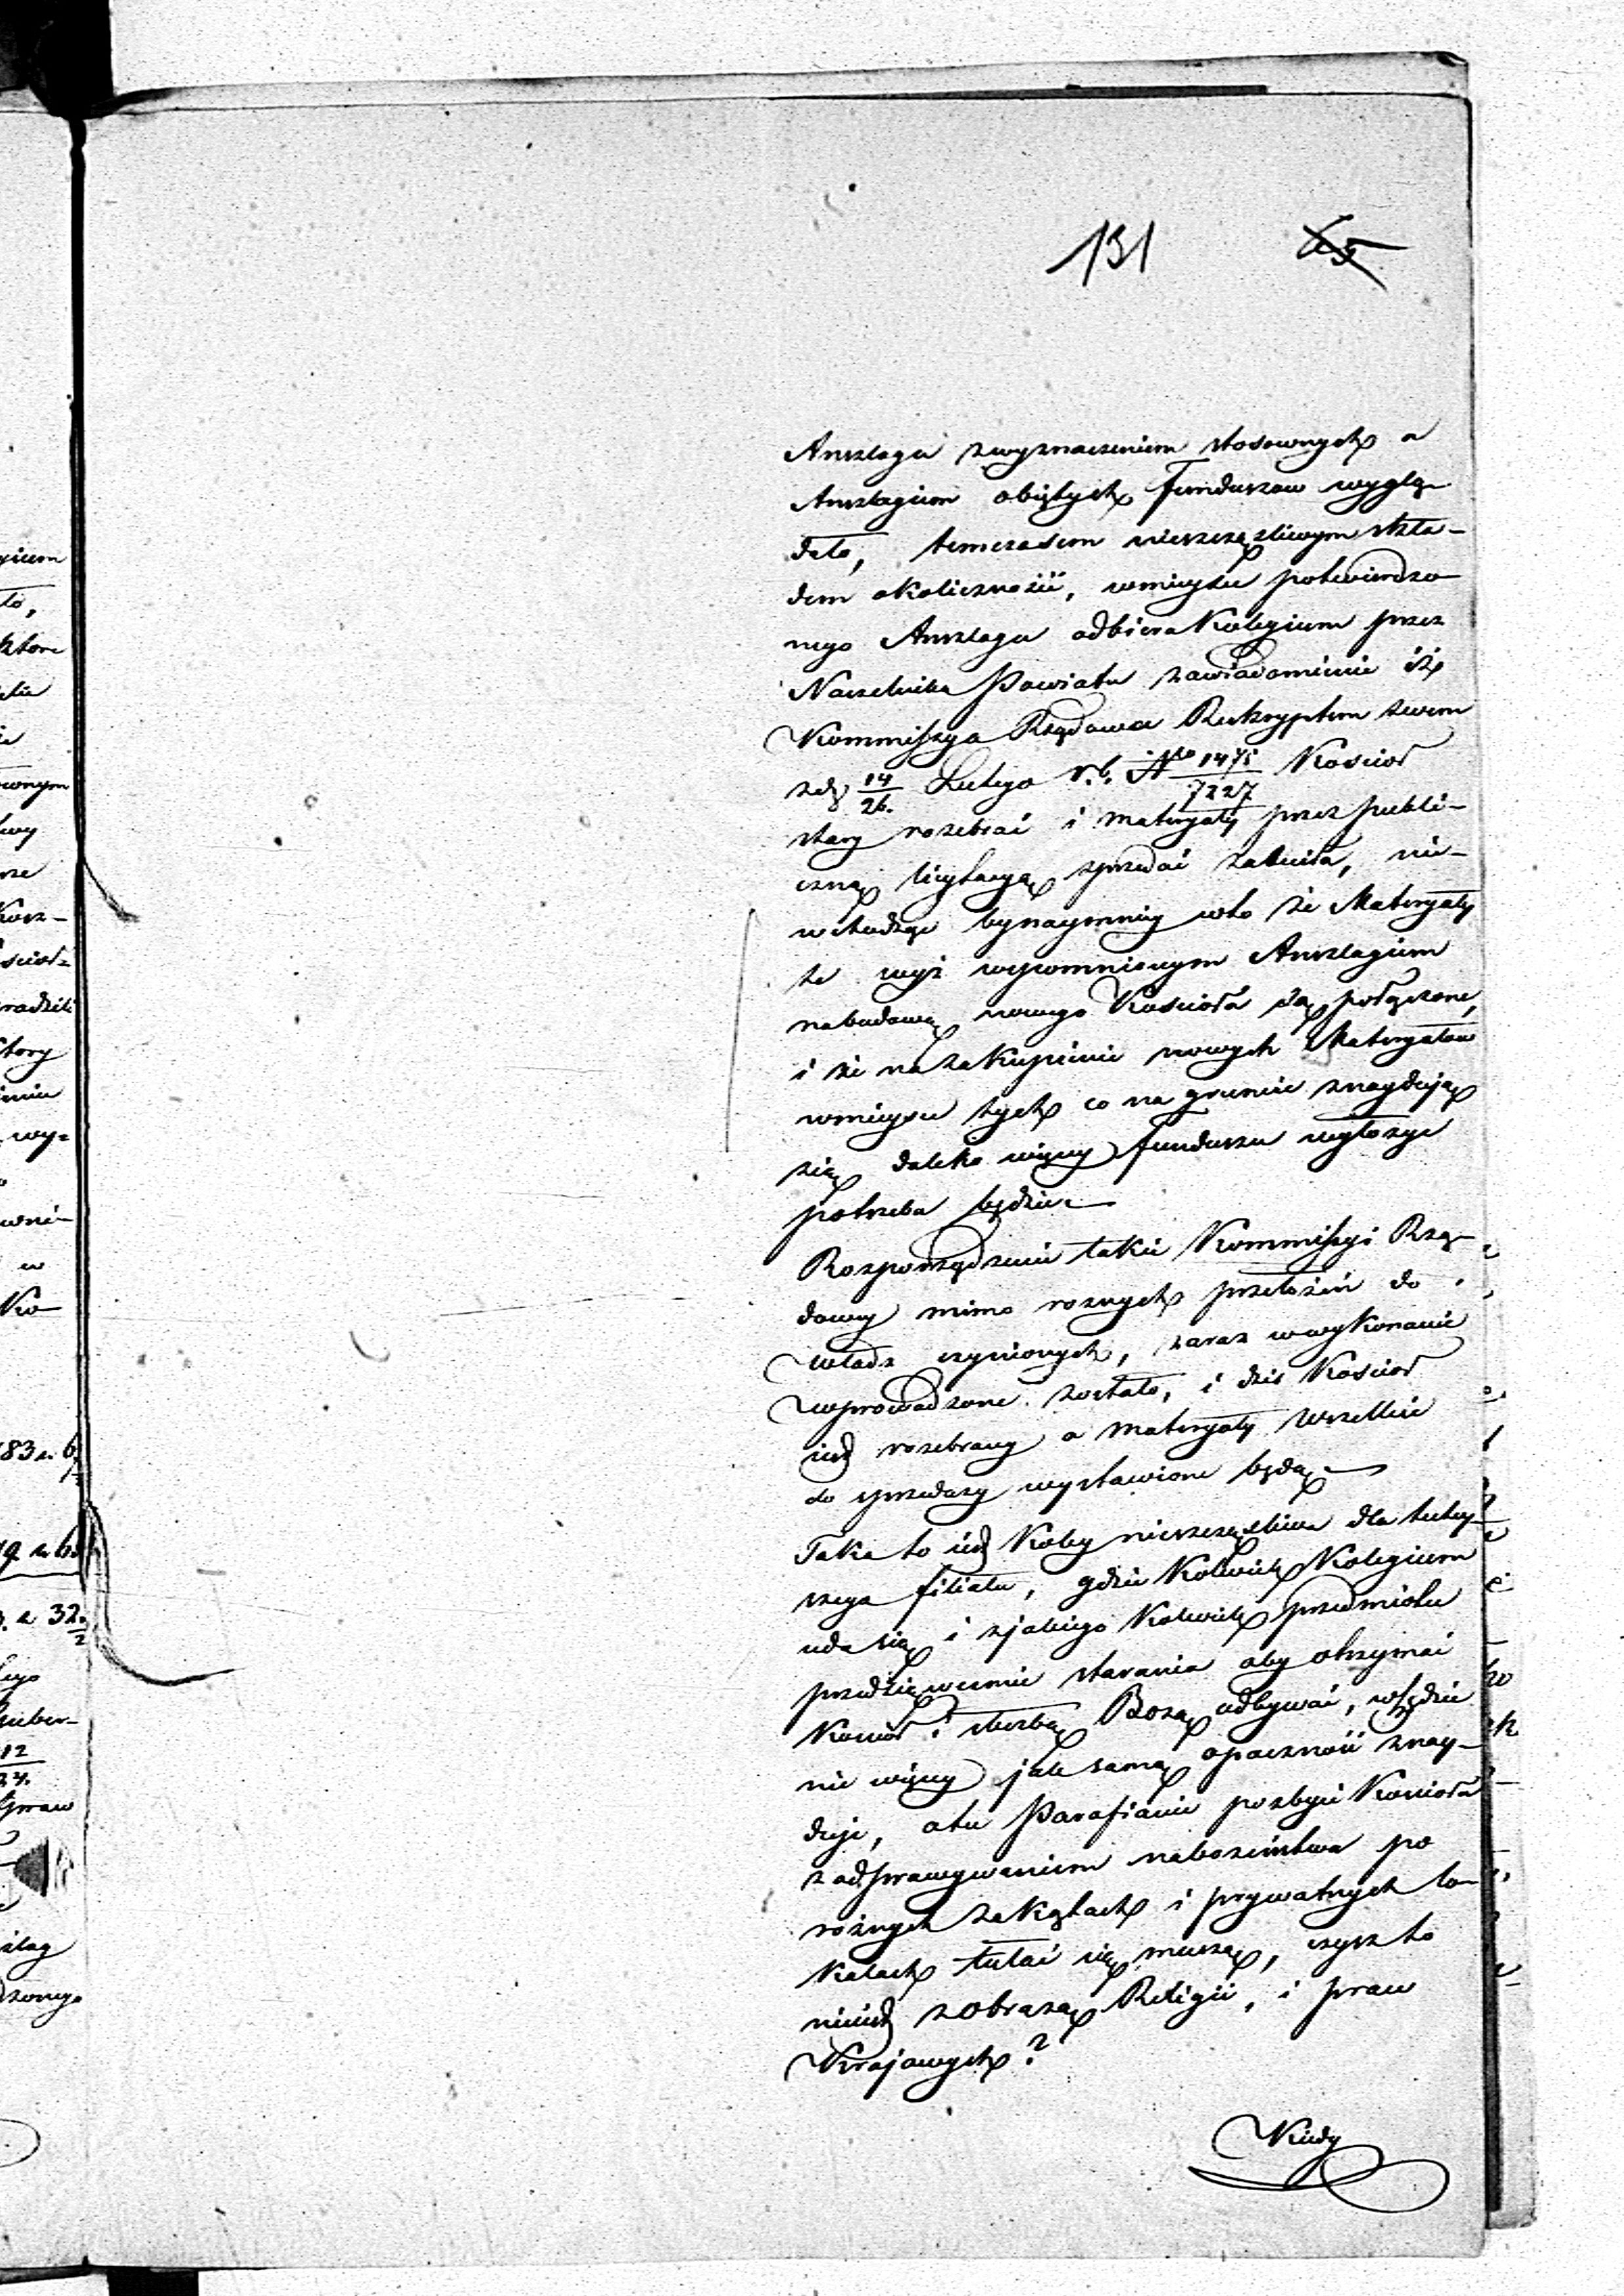 131 65
Anszlagu zwyznaczeniem stosownych a
Anszlagiem obiętych Funduszow wyglą-
dało, temczasem nieszczęśliwym skła-
dem okoliczności, wmieyscu potwierdzo-
nego Anszlagu odbiera Kolegium przez
Naczelnika Powiatu zawiadomienie iż
Kommissya Rządowa Reskryptem swem
z d. 14/26. Lutego r. b. No 1475/7227 Kościoł
stary rozebrać i materyały przez publi-
czną licytacyą sprzedać zaleciła, nie-
wchodząc bynaymniey wto że Materyały
te wyż wspomnionym Anszlagiem
nabudowę nowego Kościoła są połączone,
i że na zakupienie nowych Materyałow
wmieyscu tych co na gruncie znayduią
się daleko więcey funduszu wyłożyć
potrzeba będzie
Rozporządzenie takie Kommissyi Rzą-
dowey mimo roznych przełożeń do
władz czynionych, zaraz wwykonanie
wprowadzone zostało, i dziś Kościoł
iest rozebrany a materyały wszelkie
do sprzedaży wystawione będą
Taka to iest Koley nieszczęśliwa dla tutey-
szego filiału, gdzie Kolwiek Kolegium
uda się i zjakiego Kolwiek przedmiotu
przedsięweźmie starania aby otrzymać
Kościoł i służbę Bożą odbywać, wszędzie
nie więcey jak samą opaczność znay-
duje, a tu Parafianie pozbyci Kościoła
z odprawywaniem nabożeństwa po
rożnych zakątach i prywatnych lo-
kalach tułać się muszą, czysz to
nieiest z obrazą Religii, i praw
Krajowych?
Kiedy